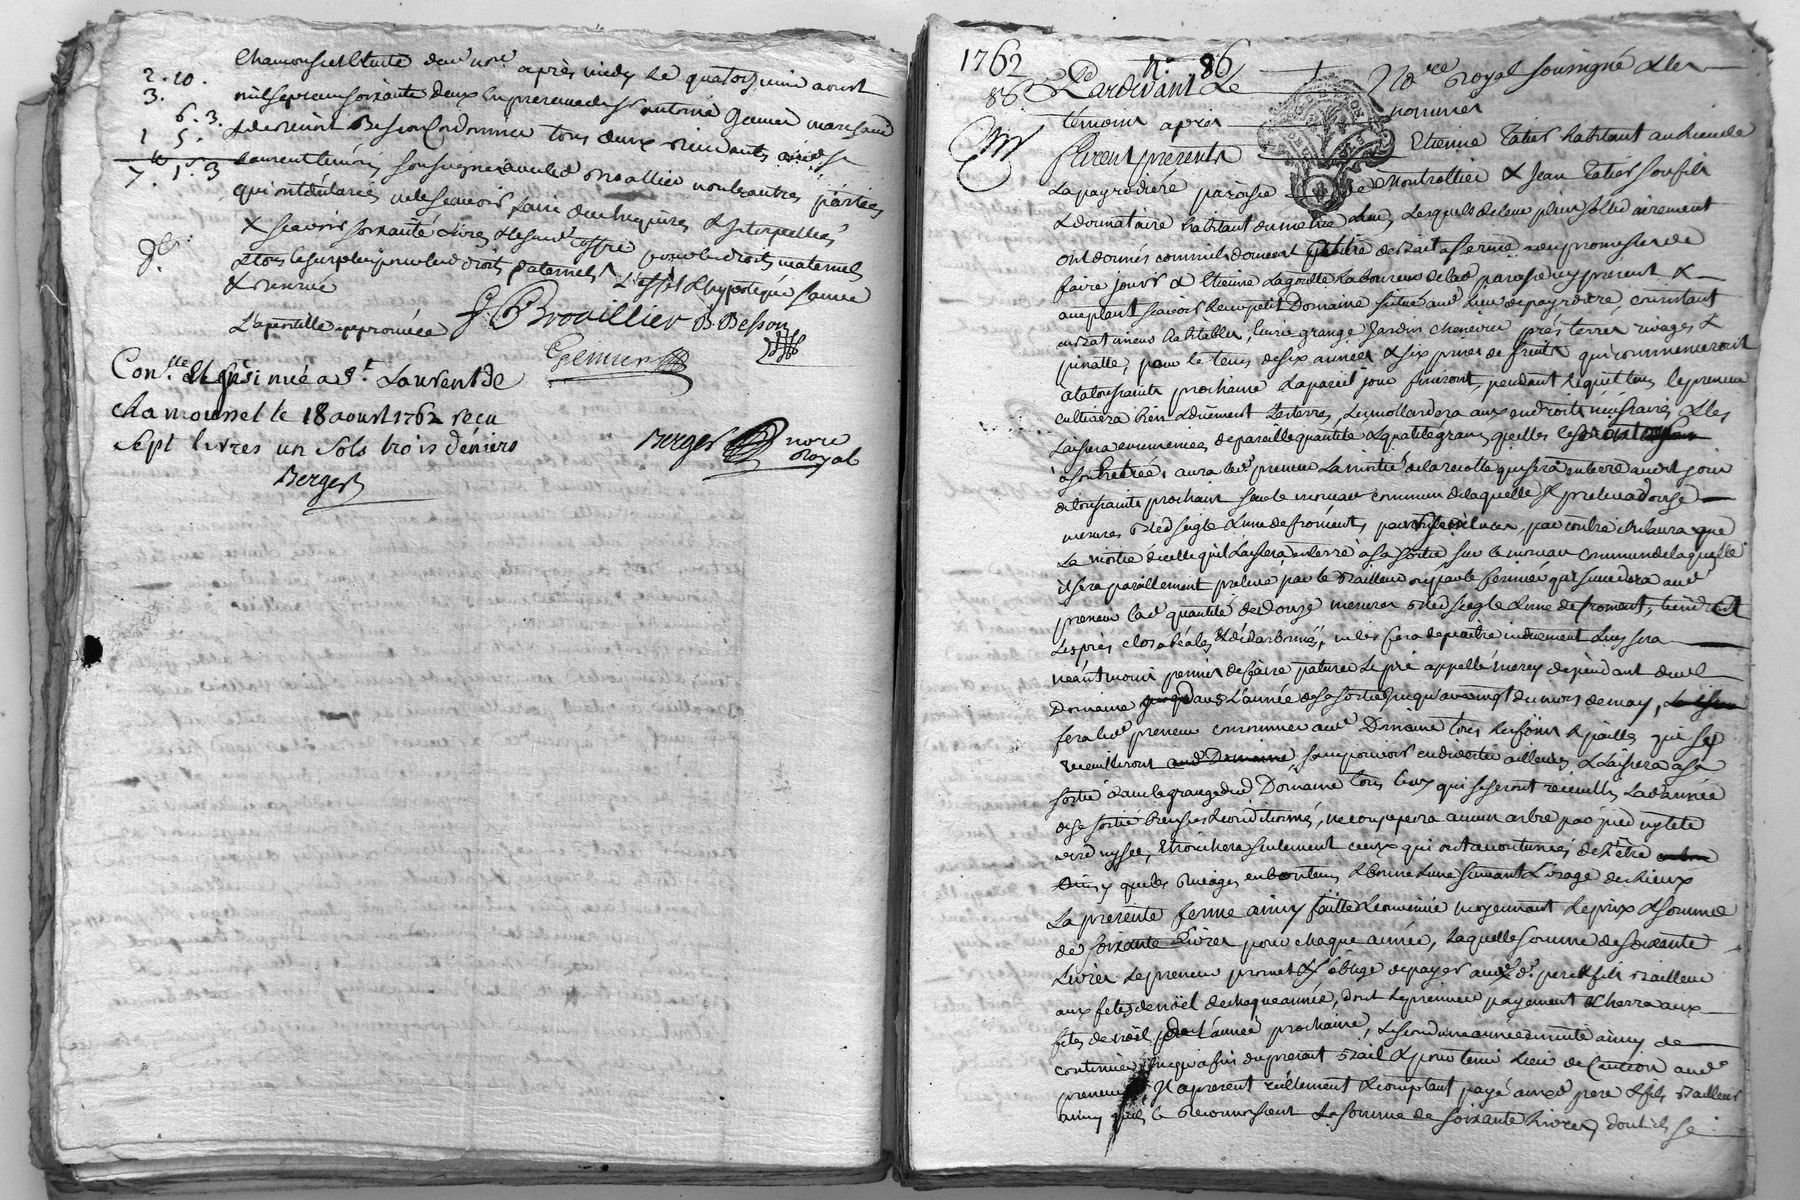 chamousset Etude dud. no.re après midy le quatorzieme aoust
mil sept cent soixante deux En presence de sr antoine Genier marchand
& de Benoit Besson Cordonnier tous deux
Laurent temoins soussignés avec led. Broallier non les autres parties
qui ont declarées ne le scavoir faire de ce enquises & interpellées
& scavoir soixante Livres & led. coffre pour les droits maternels
& tout le surplus pour les droits paternels
L'apostille approuvée J. Broaillier B. Besson
Genier
2. 10.
3.
6. 3.
1 5.
7. 1. 3
Con.lle Et insinué a St. Laurent de
chamousset le 18 aoust 1762 recu
sept livres un sols trois deniers
Berger
Berger nore
royal
1762 n.° 86
86 Pardevant Le No.re royal soussigné & les
témoins après nommés
furent présents Etienne Tatier habitant au lieu de
La payrodiere paroisse de Montrottier & Jean Tatier son fils
& donnataire habitant du meme lieu, Lesquels de leur plein gré et volontairement
ont donnés comme ils donnent à titre de Bail a ferme avec promesse de
faire jouir à Etienne Lagoutte Laboureur de lad. paroisse icy present &
acceptant scavoir leur petit Domaine situé aud. lieu de payrodiere, consistant
en batiments habitables, Ecurie grange, Jardin cheneviere prés terres rivages &
pinatte, pour le tems de six années & six prises de fruits qui commenceront
à la toussaints prochaine & a pareil jour finiront, pendant lequel tems le preneur
cultivera bien & duement les terres, Les mollardera aux endroits nécessaires & les
Laissera ensemencées de pareille quantité & qualité grains quelles le seront
à son Entrée, aura led. preneur La moitié de la recolte qui sera en terre au dit jour
de toussaints prochain sur le monceau commun de laquelle il prelevera douze
mesures Bled seigle & une de froment, par contre il n'aura que
La moitié de celle qu'il Laissera en terre à sa sortie sur le monceau commun de laquelle
il sera pareillement prelevé par le Bailleur ou par le fermier qui succedera aud.
preneur lad. quantité de Douze mesures Bled seigle & une de froment; tiendra
Les prés clos abéalés & dédarbonnés, ne les fera depaitre induement Luy sera
néantmoins permis de faire paturer Le pré appellé morey dépendant dud.
Domaine dans L'année de sa sortie jusqu'au vingt du mois de may,
fera led. preneur consommer aud. Domaine tous les foins & pailles qui se
recueilliront sans pouvoir en divertir ailleurs & Laissera a sa
sortie dans la grange dud. Domaine tous ceux qui se seront recueillis Lad. année
de sa sortie bien secs & conditionnés, ne coupera aucun arbre par pied ny tete
verd ny sec, Ebranchera seulement ceux qui ont accoutumés de L'être
Ainsy que les Buissons en bon tems & bonne Lune suivant L'usage des lieux
La presente ferme ainsy faitte & convenue moyennant le prix & somme
de soixante Livres pour chaque année, laquelle somme de soixante
Livres Le preneur promet & s'oblige de payer auxd. Srs. pere & fils Bailleurs
aux fetes de noël de chaque année, dont Le premier payement Echerra aux
fetes de noël de L'année prochaine, Le second une année ensuitte ainsy de
continuer jusqu'a fin du present Bail & pour tenir Lieu de Caution aud.
preneur Il a presentement réellement & comptant payé auxd. pere & fils Bailleurs
ainsy quils le Reconnoissent La somme de soixante Livres, dont ils se